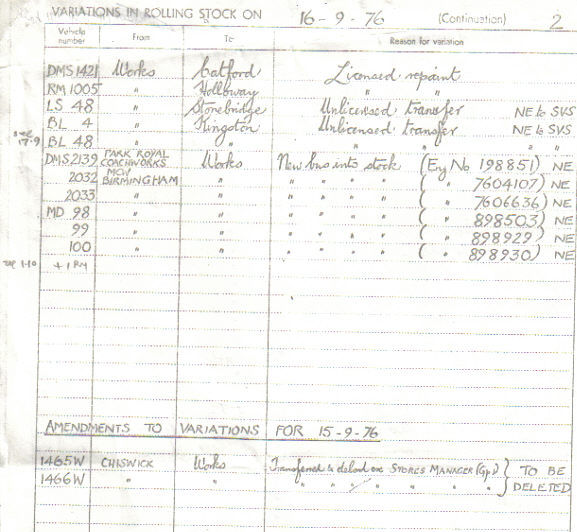 VARIATIONS IN ROLLING STOCK ON 16-9-76 (Continuation) 2
Vehicle number From To Reason for variation
DMS 1421 Works Catford Licensed repaint
RM 1005 " Holloway " "
LS 48 " Stonebridge Unlicensed transfer NE to SVS
BL 4 " Kingston Unlicensed transfer NE to SVS
see 17-9 BL 48 " " " " " "
DMS 2139 PARK ROYAL COACHWORKS Works New bus into stock (Eng No 198851) NE
2032 MCW BIRMINGHAM " " " " " ( " 7604107) NE
2033 " " " " " " ( " 7606636) NE
MD 98 " " " " " " ( " 898503) NE
99 " " " " " " ( " 898929) NE
100 " " " " " " ( " 898930) NE
1-10 + 1 RM
AMENDMENTS TO VARIATIONS FOR 15-9-76
1465W CHISWICK Works Transferred to STORES MANAGER (Gp1) } TO BE
1466W " " " " " " " } DELETED